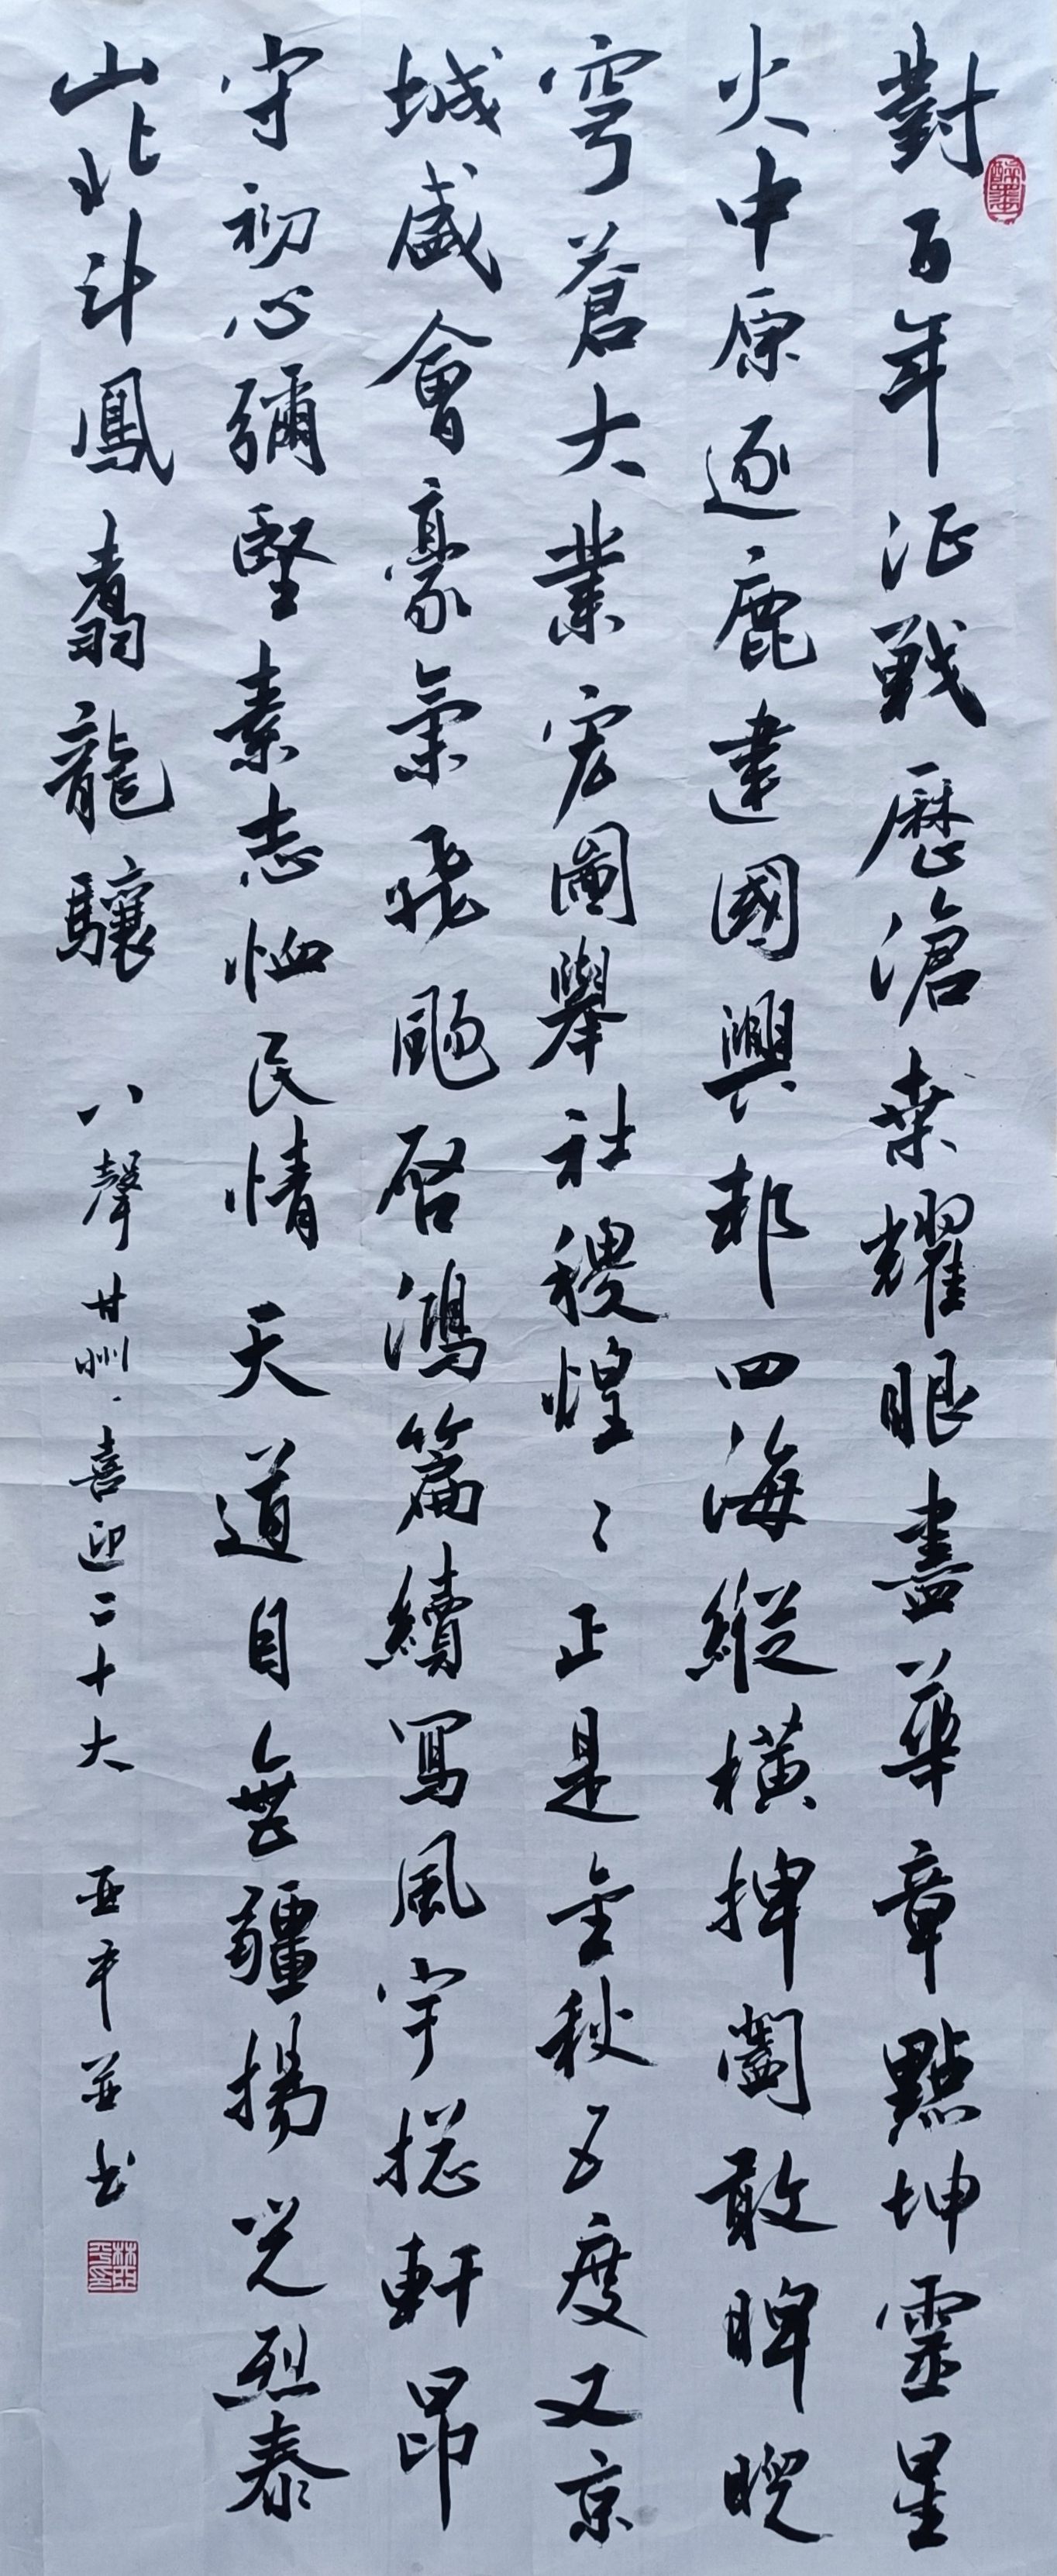 對百年征戰歷滄桒耀眼盡華章點坤靈星
火中原逐鹿建國興邦四海縱橫捭闔敢睥睨
穹蒼大業宏圖舉社稷煌〻正是金秋五度又京
城盛會豪氣飛颺啓鴻篇續寫風宇挖軒昂
守初心彌堅素志恤民情天道自無疆揚光烈泰
山北斗鳳翥龍驤
八聲甘州·喜迎二十大
亚平並书